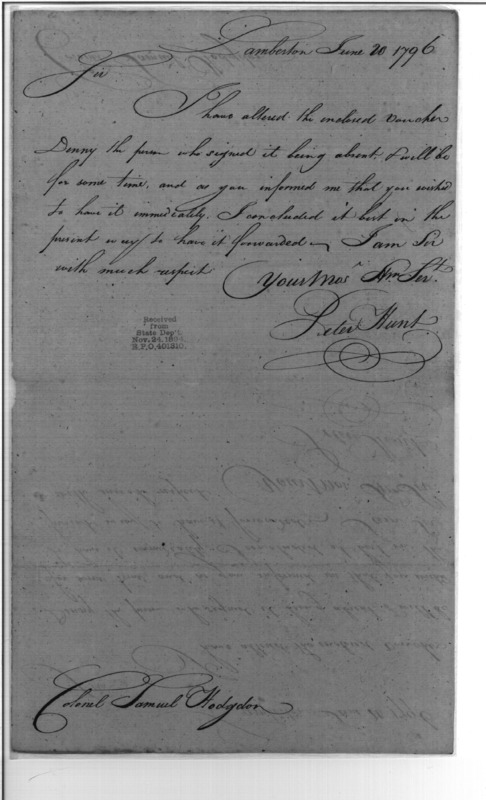 Lamberton June 20 1796
Sir
I have altered the enclosed voucher
Denny the person who signed it being absent, & will be
for some time, and as you informed me that you wished
to have it immediately, I concluded it best in the
present way to have it forwarded I am Sir
with much respect Your Mos Hm Sert
Peter Hunt
Received
from
State Dep't.
Nov. 24, 1894,
R.P.O. 401210.
Colonel Samuel Hodgdon